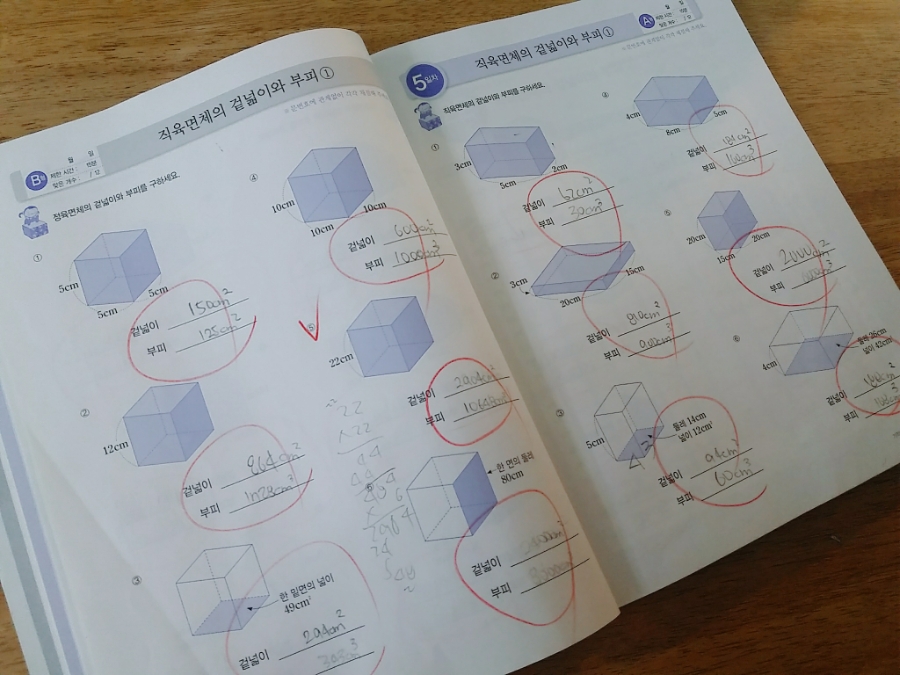 직육면체의 겉넓이와 부피①
B형
월 일
제한 시간: 15분
맞은 개수: / 답
정육면체의 겉넓이와 부피를 구하세요.
①
5cm
5cm
5cm
겉넓이 150cm²
부피 125cm²
②
12cm
겉넓이 864cm²
부피 1728cm³
③
한 밑면의 넓이
49cm²
겉넓이 294cm²
④
10cm
10cm
10cm
겉넓이 600cm²
부피 1000cm³
⑤
22cm
겉넓이 2904cm²
부피 10648cm³
22
×22
44
한 면의 둘레
80cm
겉넓이
부피
5일차
직육면체의 겉넓이와 부피①
A형
월 일
직육면체의 겉넓이와 부피를 구하세요.
①
3cm
5cm
2cm
겉넓이 62cm²
부피 30cm³
②
3cm
20cm
15cm
겉넓이 810cm²
부피 900cm³
③
5cm
둘레 14cm
넓이 12cm²
겉넓이 94cm²
부피 60cm³
④
4cm
8cm
5cm
겉넓이
부피 160cm³
⑤
20cm
15cm
20cm
겉넓이 2000cm²
부피
⑥
4cm
둘레 26cm
넓이 42cm²
겉넓이
부피